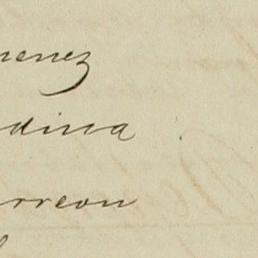 menez
dina
rreon